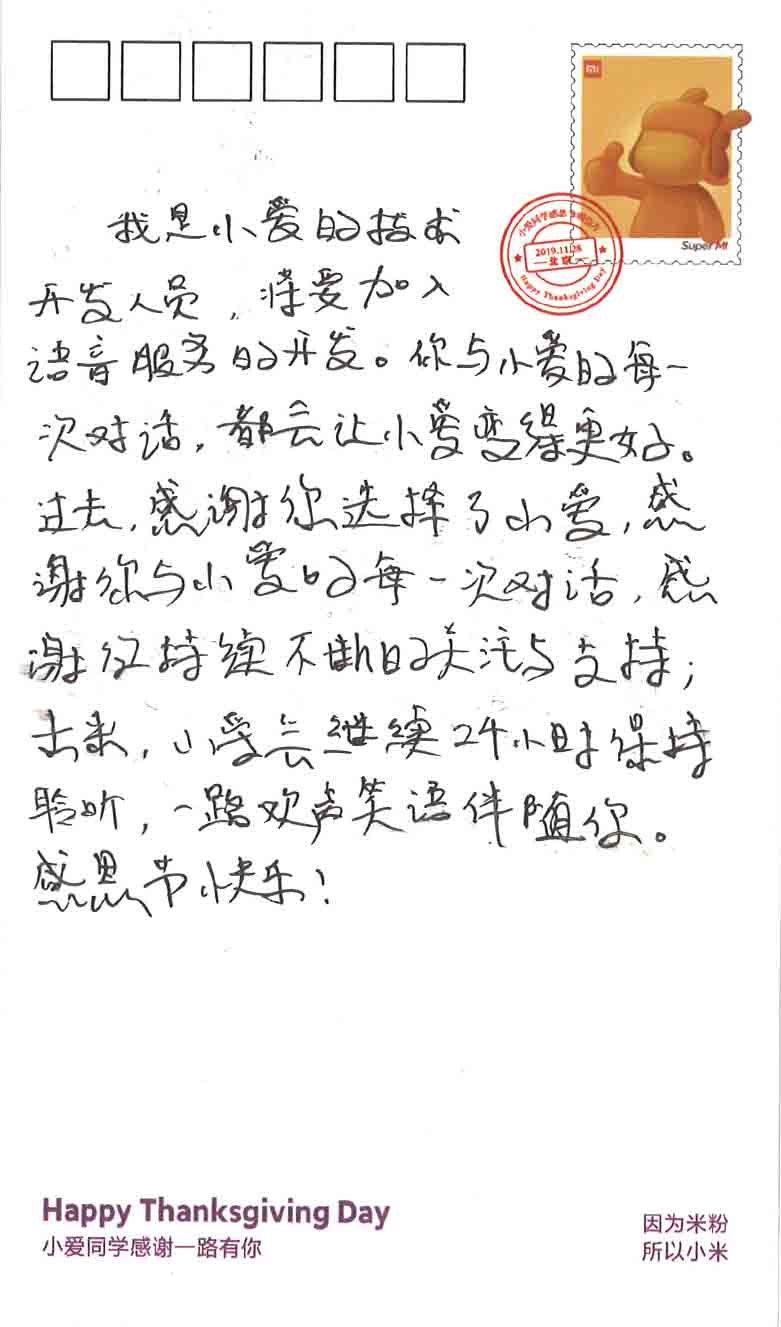 MI
Super MI
小爱同学感恩
2019.11.28
北京
Happy Thanksgiving Day
我是小爱的技术
开发人员，将要加入
语音服务的开发。你与小爱的每一
次对话，都会让小爱变得更好。
过去，感谢你选择了小爱，感
谢你与小爱的每一次对话，感
谢你持续不断的关注与支持；
未来，小爱会继续24小时保持
聆听，一路欢声笑语伴随你。
感恩节快乐！
Happy Thanksgiving Day
小爱同学感谢一路有你
因为米粉
所以小米